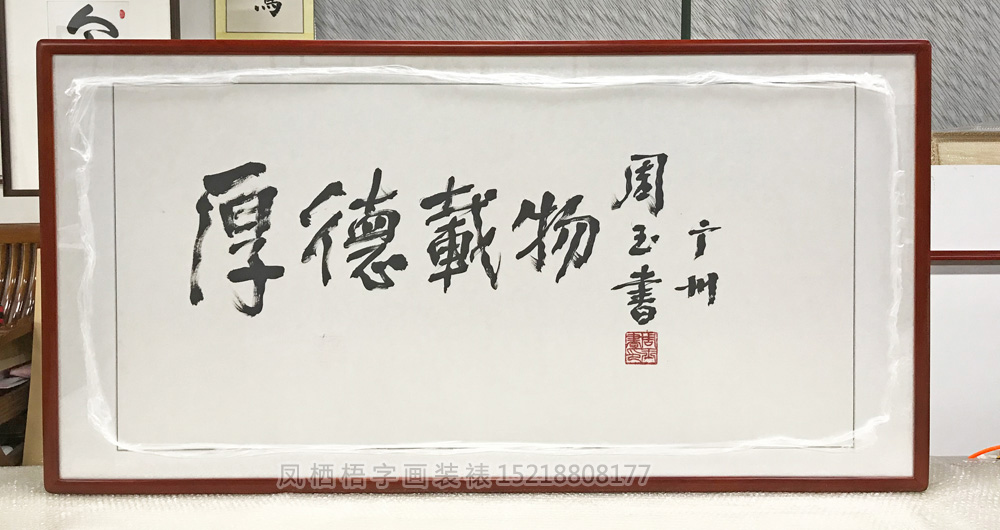 厚德載物
周玉書
凤栖梧字画装裱15218808177